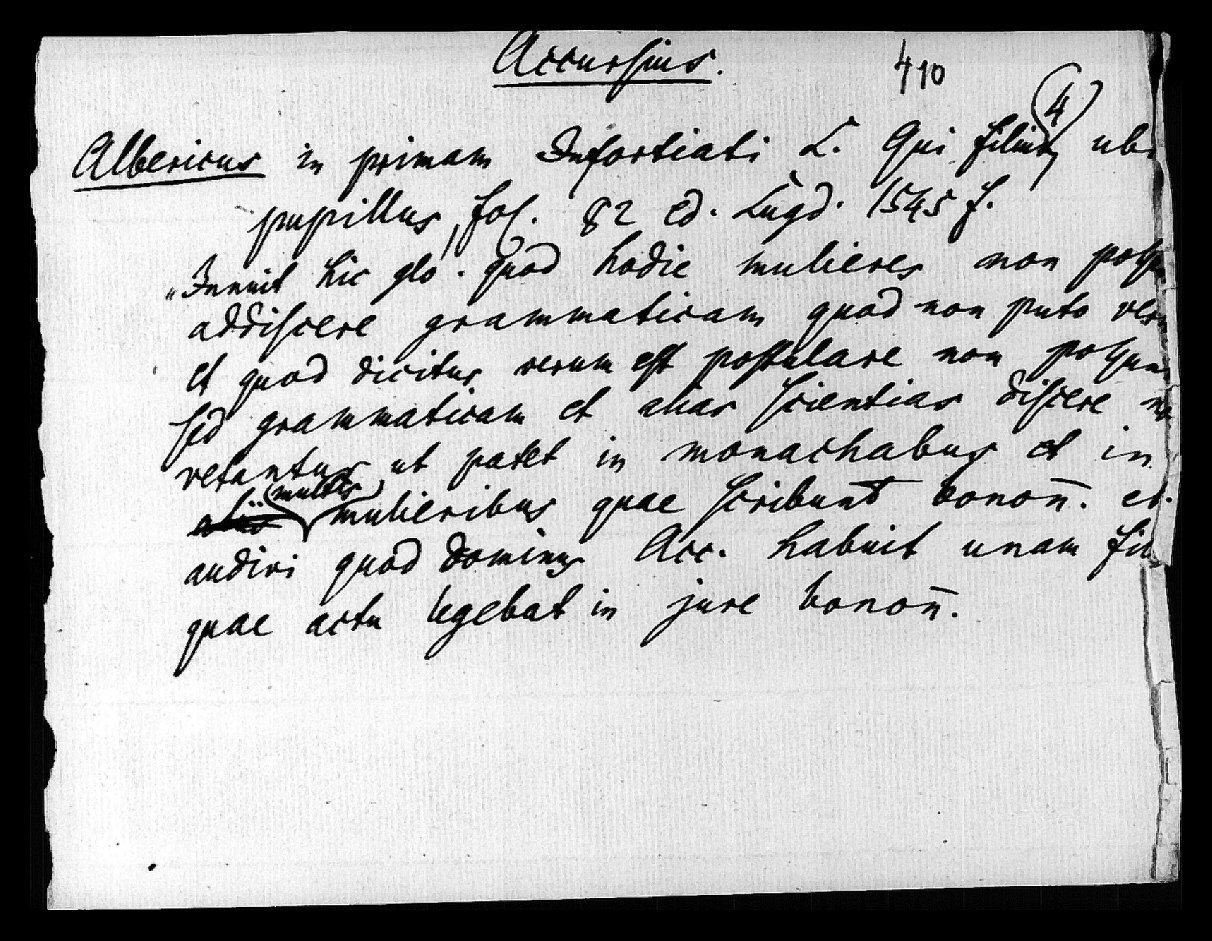 Accursius.
410
4
Albericus in primam Infortiati L. Qui filium, ubi
pupillus, fol. 82 ed. Lugd. 1545 f.
„Innuit hic glo. quod hodie mulieres non poss
addiscere grammaticam quod non puto veru
et quod dicitur verum est postulare non possun
sed grammaticam et alias scientias discere n
vetantur ut patet in monachabus et in
multis
mulieribus quae scribunt bonoñ. et
audivi quod dominus Acc. habuit unam fil
quae actu legebat in jure bonoñ.